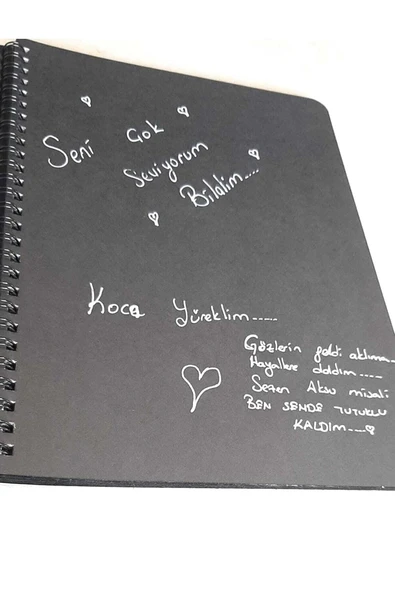 Seni Çok
Seviyorum
Bilalim....
Koca Yüreklim.....
Gözlerin geldi aklıma...
Hayallere daldım.....
Sezen Aksu misali
BEN SENDE TUTUKLU
KALDIM....